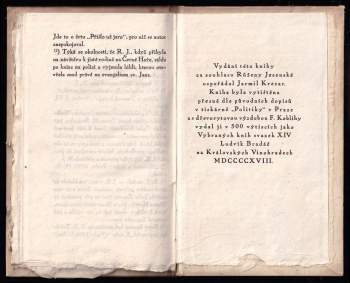 Jde tu o četu „Přišlo už jaro“, pro níž se autor
neospokojoval.
¹³) Týká se okolnosti, že R. J., když přibyla
na návštěvu k jisté rodině na Černé Hoře, sešla
po
a vyjmula
právě na evangelium sv. Jana.
Vydání této knihy
se souhlasem Růženy Jesenské
uspořádal Jarmil Krecar.
Kniha byla vytištěna
přesně dle původních dopisů
v tiskárně „Politiky“ v Praze
se dřevorytovou výzdobou F. Koblihy
vydal ji v 500 výtiscích jako
Vybraných knih svazek XIV
Ludvík Bradáč
na Královských Vinohradech
MDCCCCXVIII.